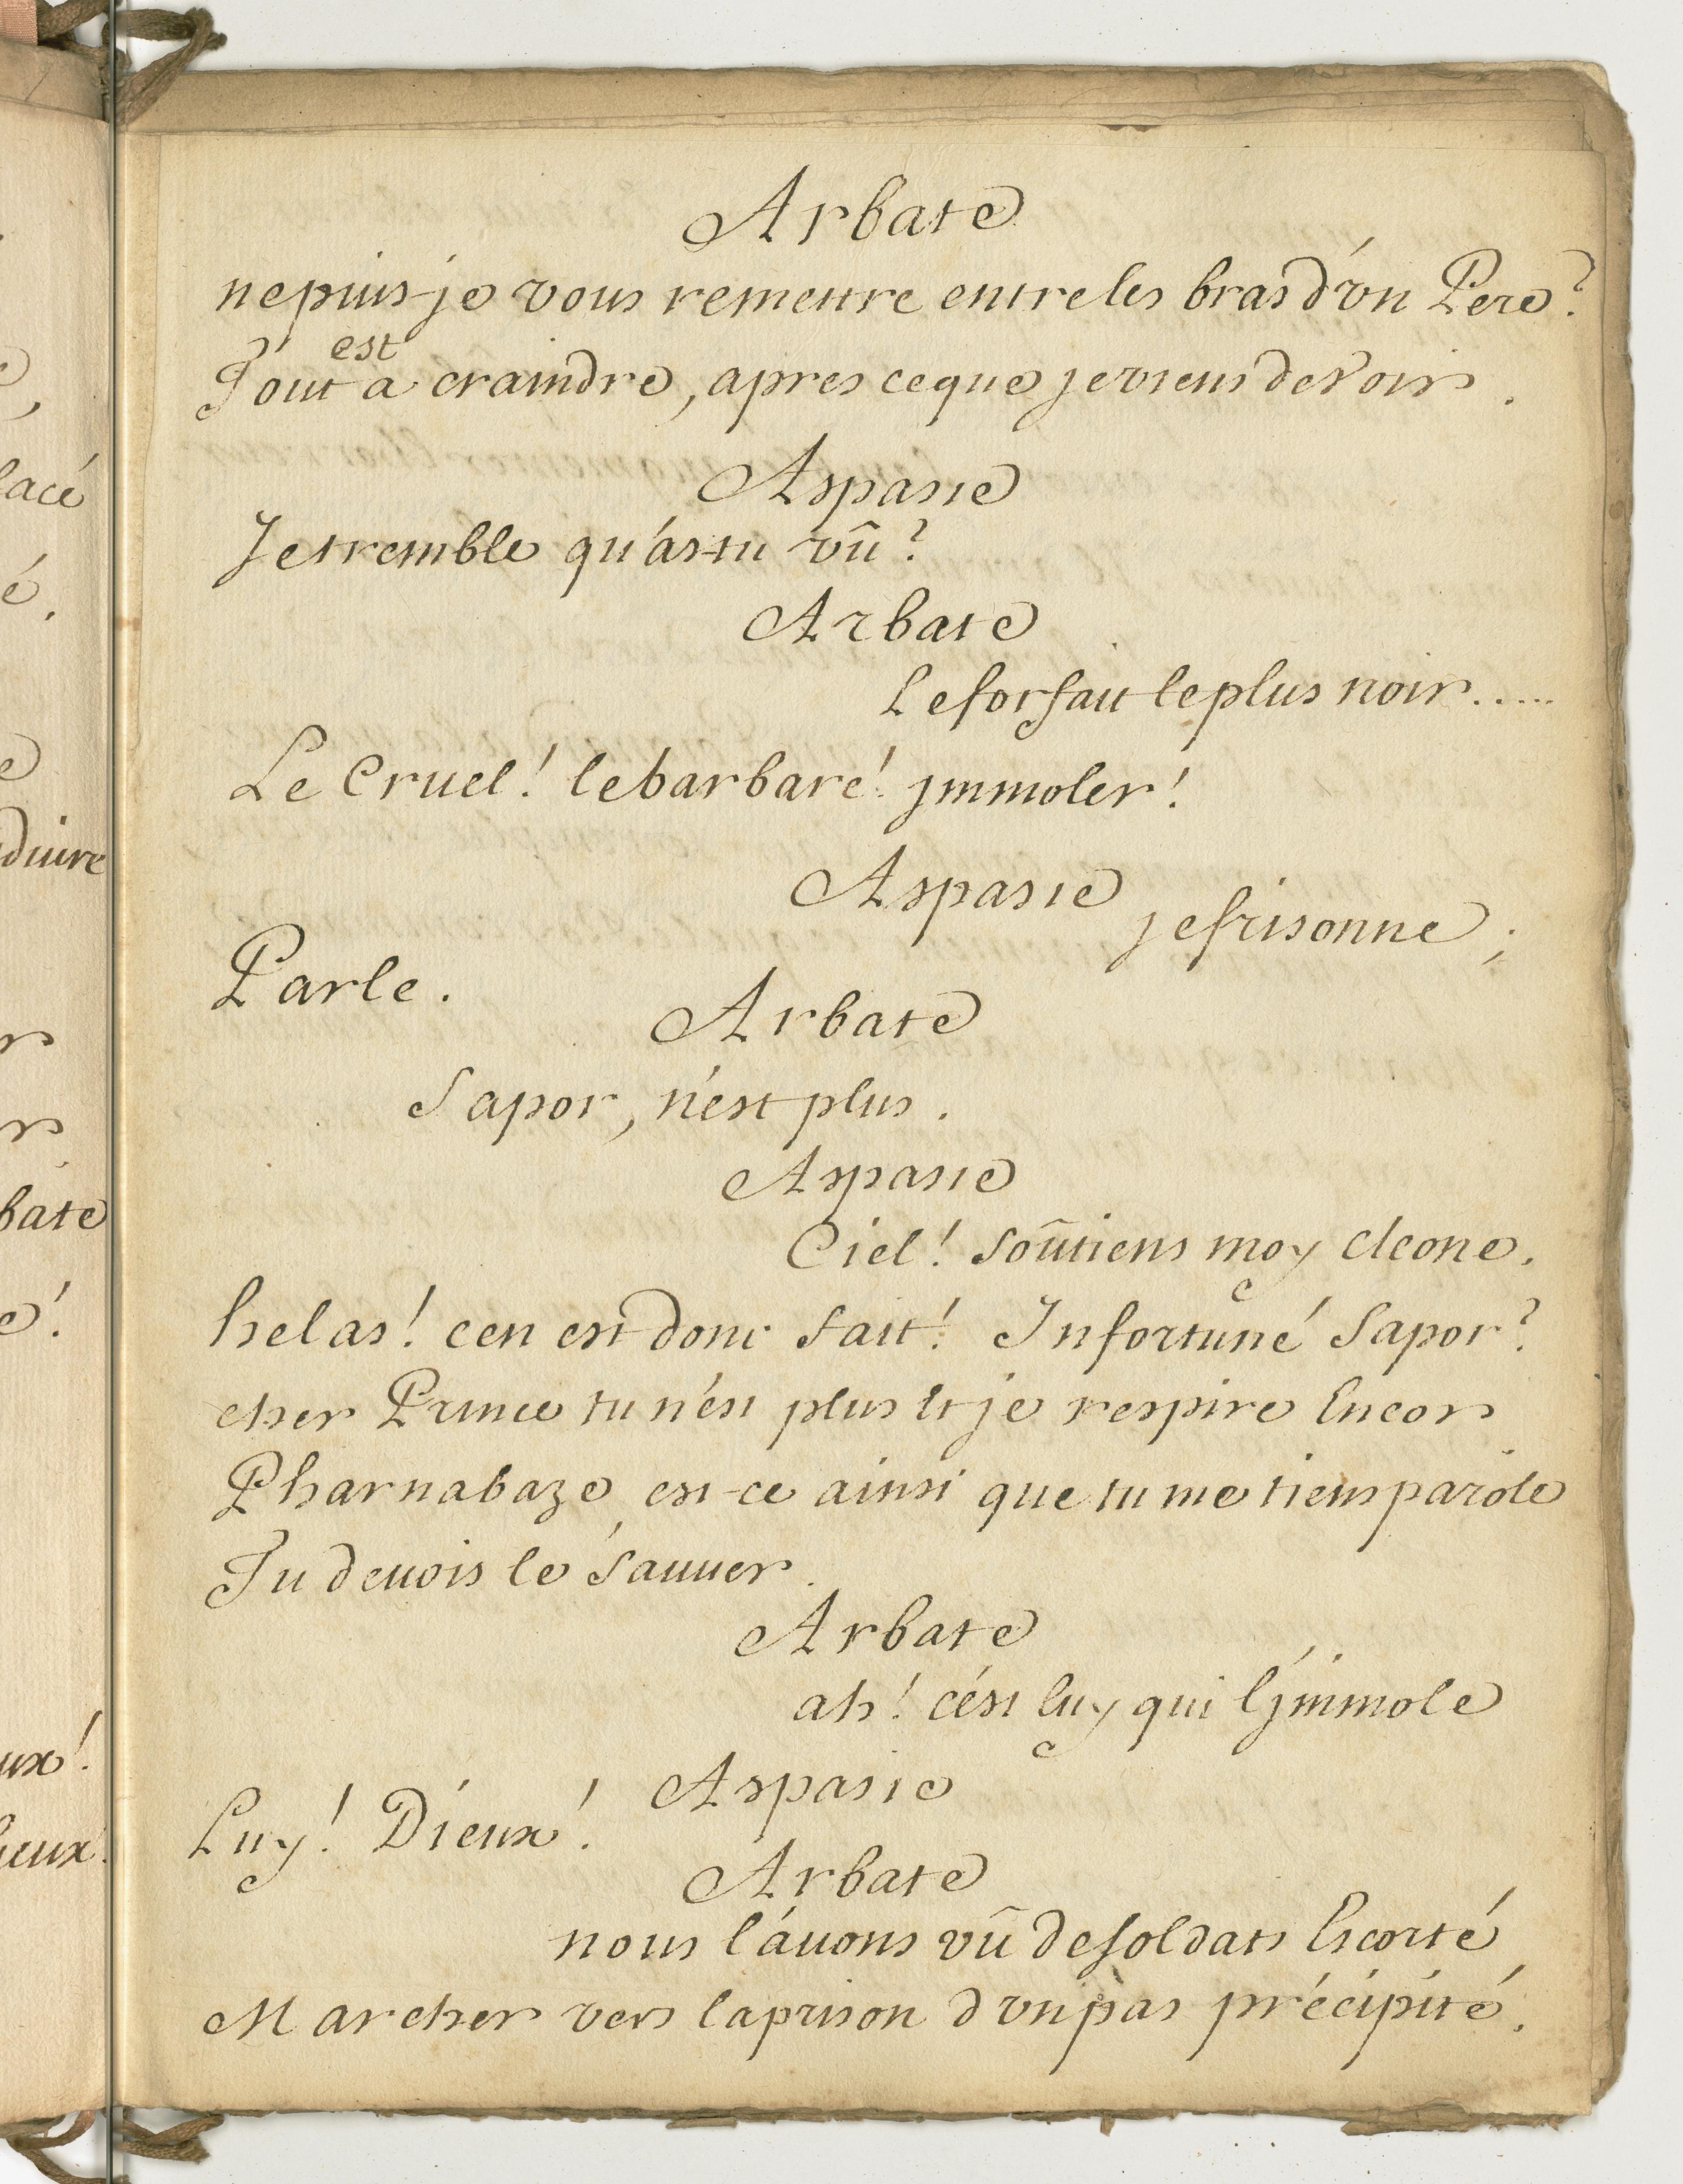 Arbate
ne puis-je vous remettre entre les bras d'vn Pere?
Tout est a craindre, apres ce que je viens de Voir.
Aspasie
Je tremble qu'as-tu vû?
Arbate
Le forfait le plus noir.....
Le Cruel! le barbare! jmmoler!
Aspasie
je frisonne;
Parle.
Arbate
Sapor, n'est plus.
Aspasie
Ciel! soûtiens moy cleone.
helas! cen est donc fait! Infortuné Sapor?
cher Prince tu n'est plus et je respire Encor
Pharnabaze est-ce ainsi que tu me tiens parole
Tu deuois le sauuer.
Arbate
ah! c'ést luy qui l'jmmole
Aspasie
Luy! Dieux!
Arbate
nous l'áuons vû de soldats Escorté
Marcher vers la prison d'vn pas précipité.
lacé
é.
duire
bate
e!
ux!
ieux.